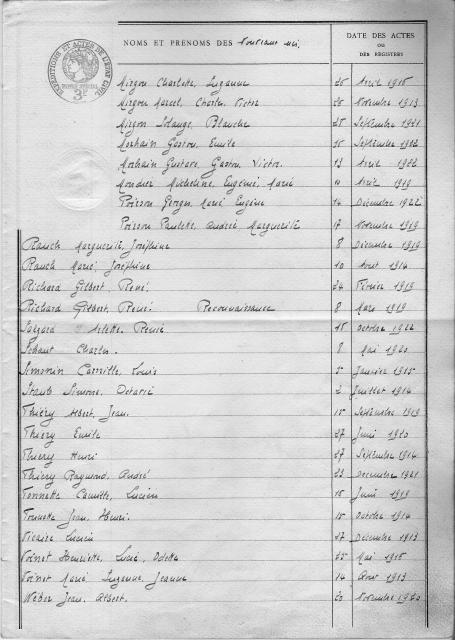 EXPEDITIONS ET ACTES DE L'ETAT CIVIL
3F
NOMS ET PRENOMS DES Nouveaux nés.
DATE DES ACTES
OU
DES REGISTRES
Mirgon Charlotte, Suzanne 26 Avril 1915
Mirgon Marcel, Charles, Victor 28 Novembre 1913
Mirgon Solange, Blanche 25 Septembre 1921
Morhain Gaston, Emile 15 Septembre 1922
Morhain Gustave, Gaston, Victor. 13 Avril 1922
Micheline, Eugénie, Marie Avril 1919
Poisson Georges, Marie Eugène 14 Décembre 1922
Poisson Paulette, André, Marguerite 17 Novembre 1919
Rauch Marguerite, Joséphine 8 Décembre 1919
Rauch Marie, Joséphine 10 Aout 1914
Richard Gilbert, René. 24 Février 1919
Richard Gilbert, René. Reconnaissance 8 Mars 1919
Arlette, Renée 18 Octobre 1922
Schaut Charles. 8 Mai 1920
Simonin Camille, Louis 5 Janvier 1915
Staub Simone, 2 Juillet 1914
Thiéry Albert, Jean. 15 Septembre 1913
Thiery Emile 27 Juin 1920
Thiery Henri 27 Septembre 1914
Thiery Raymond, André 23 Décembre 1921
Tonnette Camille, Lucien 15 Juin 1919
Tonnette Jean, Henri. 15 Octobre 1914
Vicaire Lucien 27 Décembre 1913
Voinot Henriette, Lucie, Odette 25 Mai 1915
Voinot Marie Suzanne, Jeanne 14 Aout 1913
Weber Jean, Albert. 20 Novembre 1920